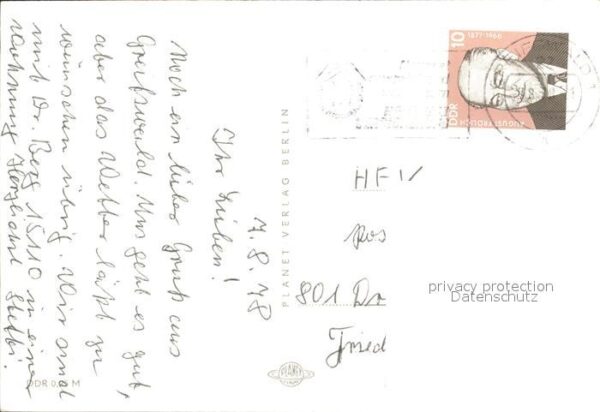 Ihr Lieben! 7.8.78
Noch ein lieber Gruß aus
Greifswald. Uns geht es gut,
aber das Wetter läßt zu
wünschen übrig. Wir sind
mit Dr. Berg in einer
Herzliche
PLANET VERLAG BERLIN
DDR 0, M
PLANET
10
1877-1966
DDR
AUGUST FRÖLICH
801 Dr
Fried
privacy protection
Datenschutz